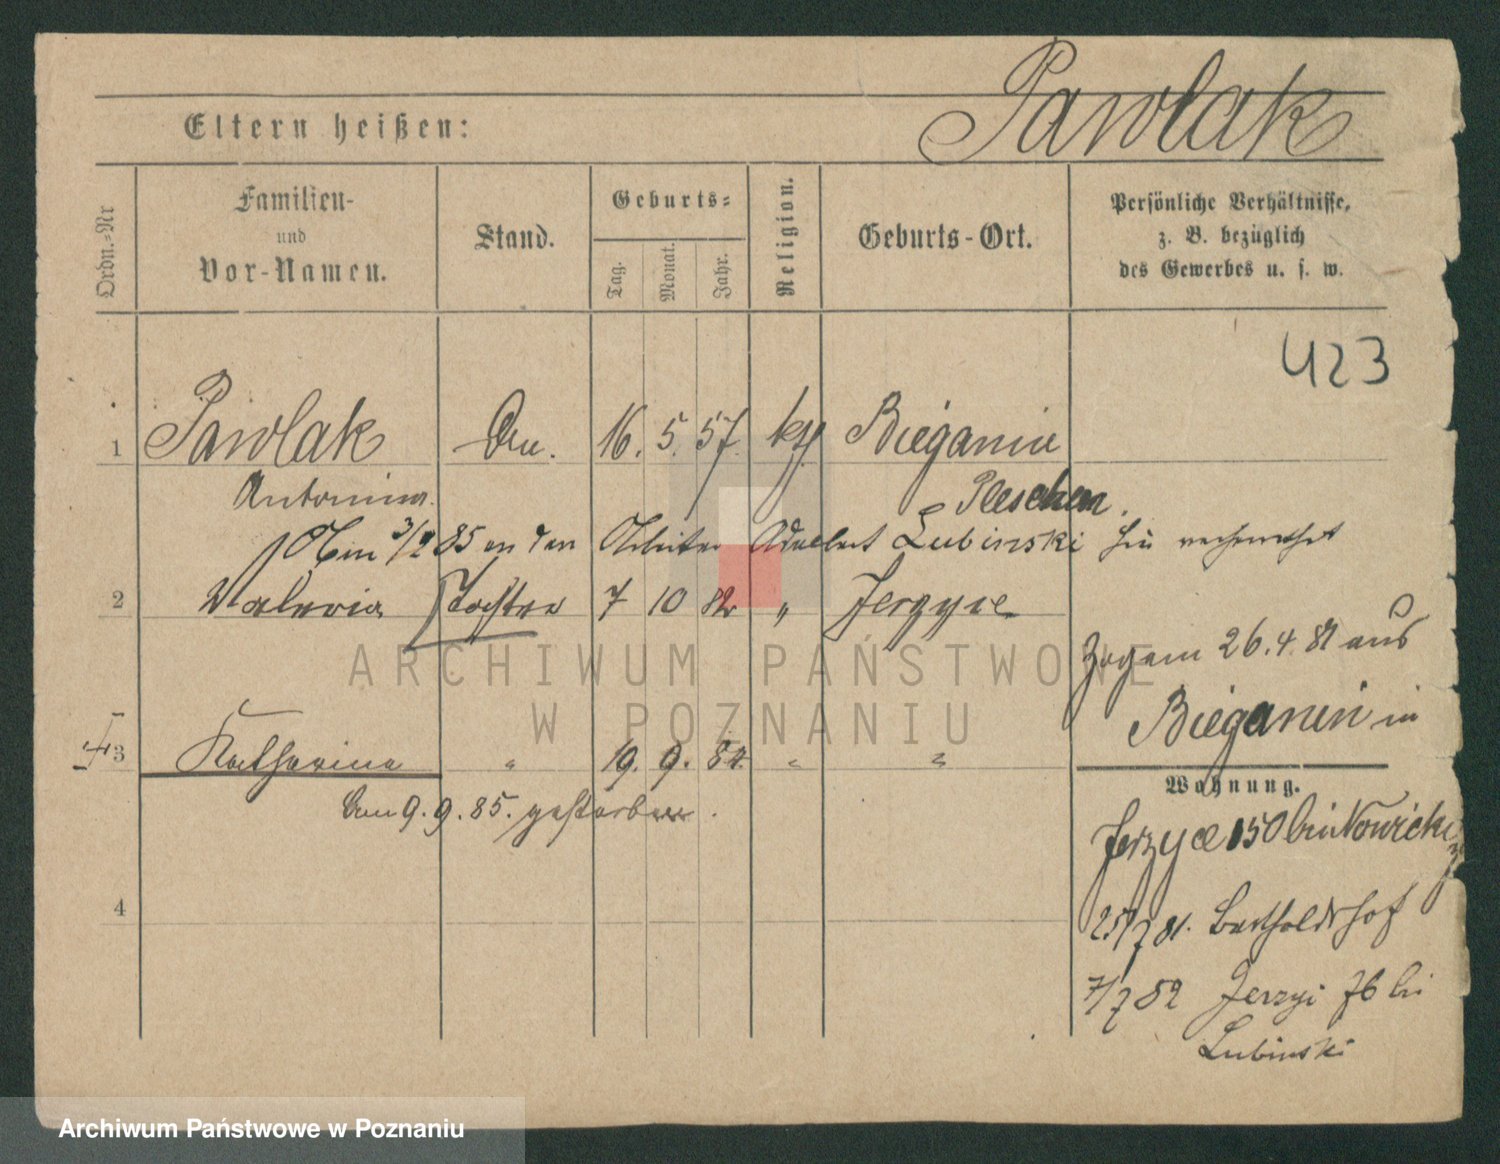 Pawlak
Eltern heißen:
Ordn.=Nr
Familien-
und
Vor-Namen.
Stand.
Geburts=
Tag.
Monat.
Jahr.
Religion.
Geburts-Ort.
Persönliche Verhältnisse,
z. B. bezüglich
des Gewerbes u. s. w.
423
1 Pawlak 16. 5. 57. kth Bieganin
Antonina. Pleschen.
3/2 85 an den Arbeiter Adalbert Lubinski hier verheirathet
2 Valeria Tochter 7 10 82 " Jerzyce
Zogam 26. 4. 81 aus
Bieganin in
3 Katharina " 19. 9. 84. " "
Wohnung.
am 9. 9. 85. gestorben.
Jerzyce 150 bei Nowicki
4
25/7 81. Bertholdshof
7/7 82 Jerzyi 76 bei
Lubinski
ARCHIWUM PAŃSTWOWE
W POZNANIU
Archiwum Państwowe w Poznaniu